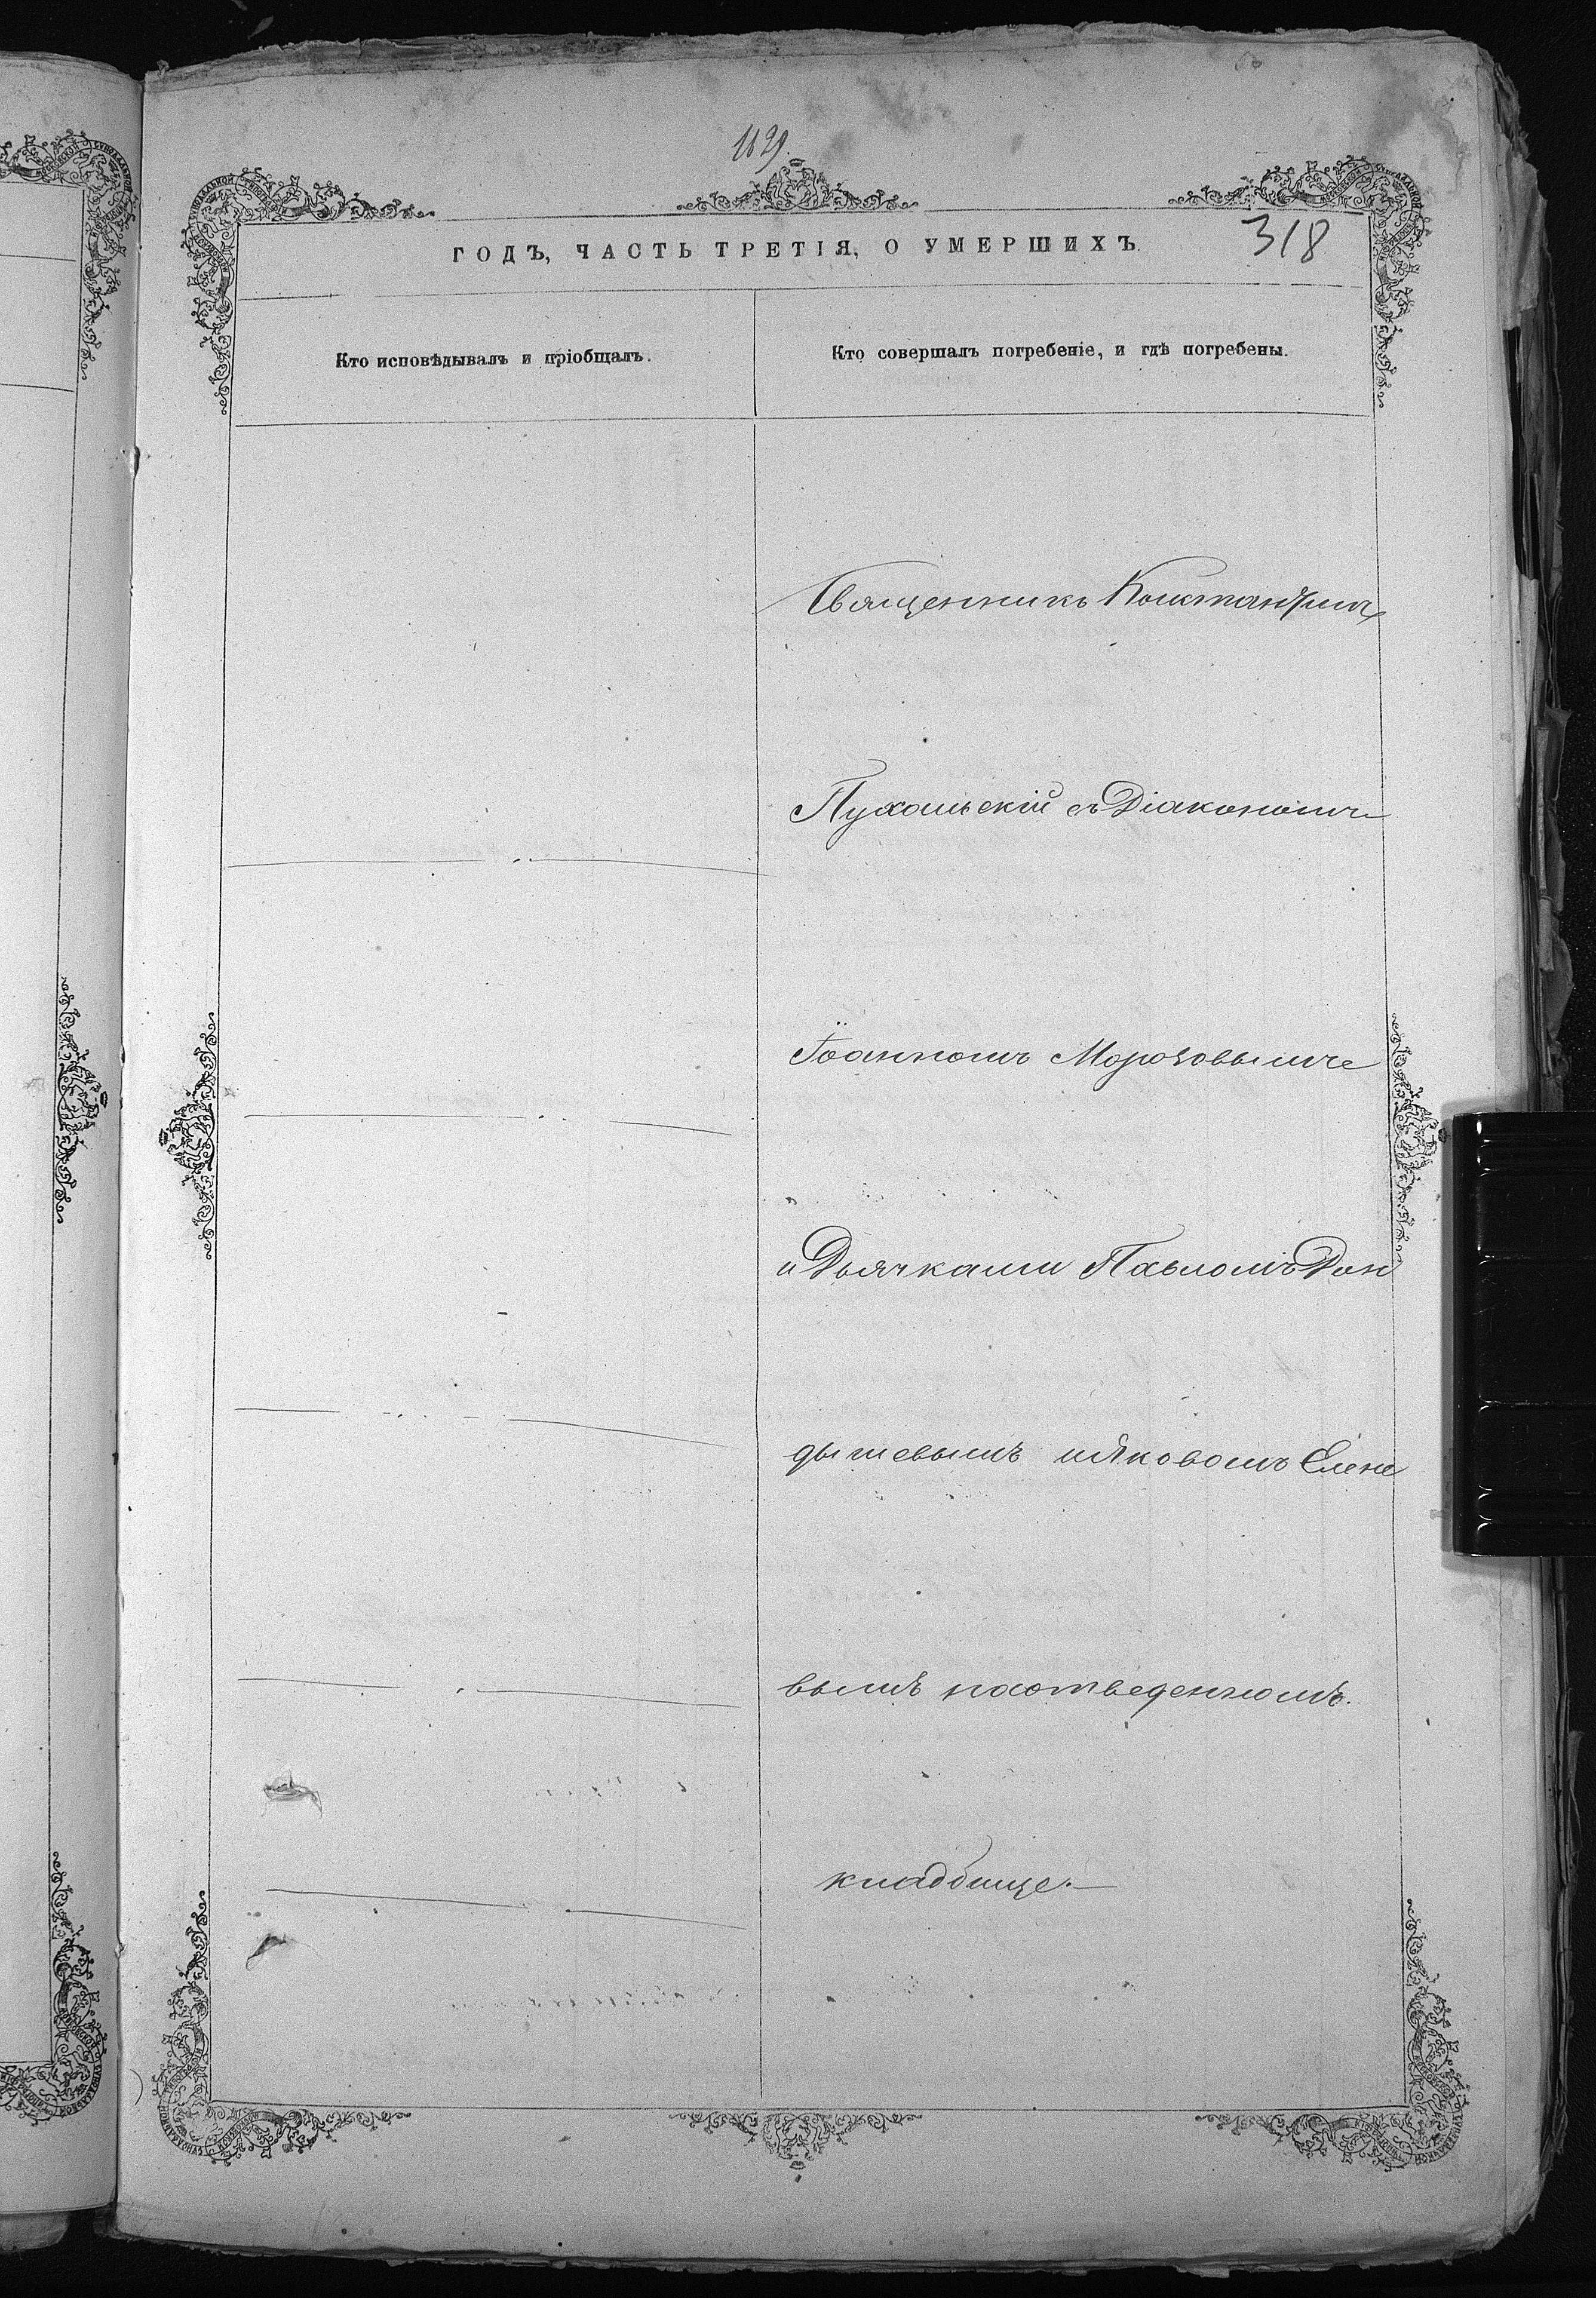 1129.
318
ГОДЪ, ЧАСТЬ ТРЕТІЯ, О УМЕРШИХЪ.
Кто исповѣдывалъ и пріобщалъ.
Кто совершалъ погребеніе, и гдѣ погребены.
Священникъ Константинъ
Пухальскій съ Діакономъ
Іоанномъ Морозовымъ
и Дьячками Павломъ Дон
дышевымъ и Яковомъ Елене
вымъ на отведенномъ.
кладбище.—